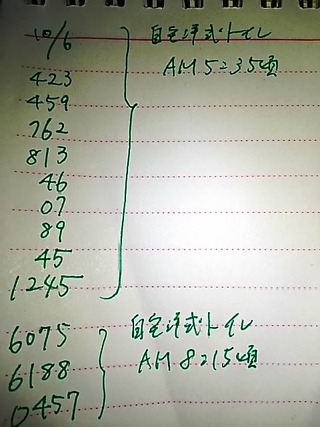 10/6 自宅洋式トイレ
AM5:35頃
423
459
762
813
46
07
89
45
1245
6075 自宅洋式トイレ
6188 AM8:15頃
0457